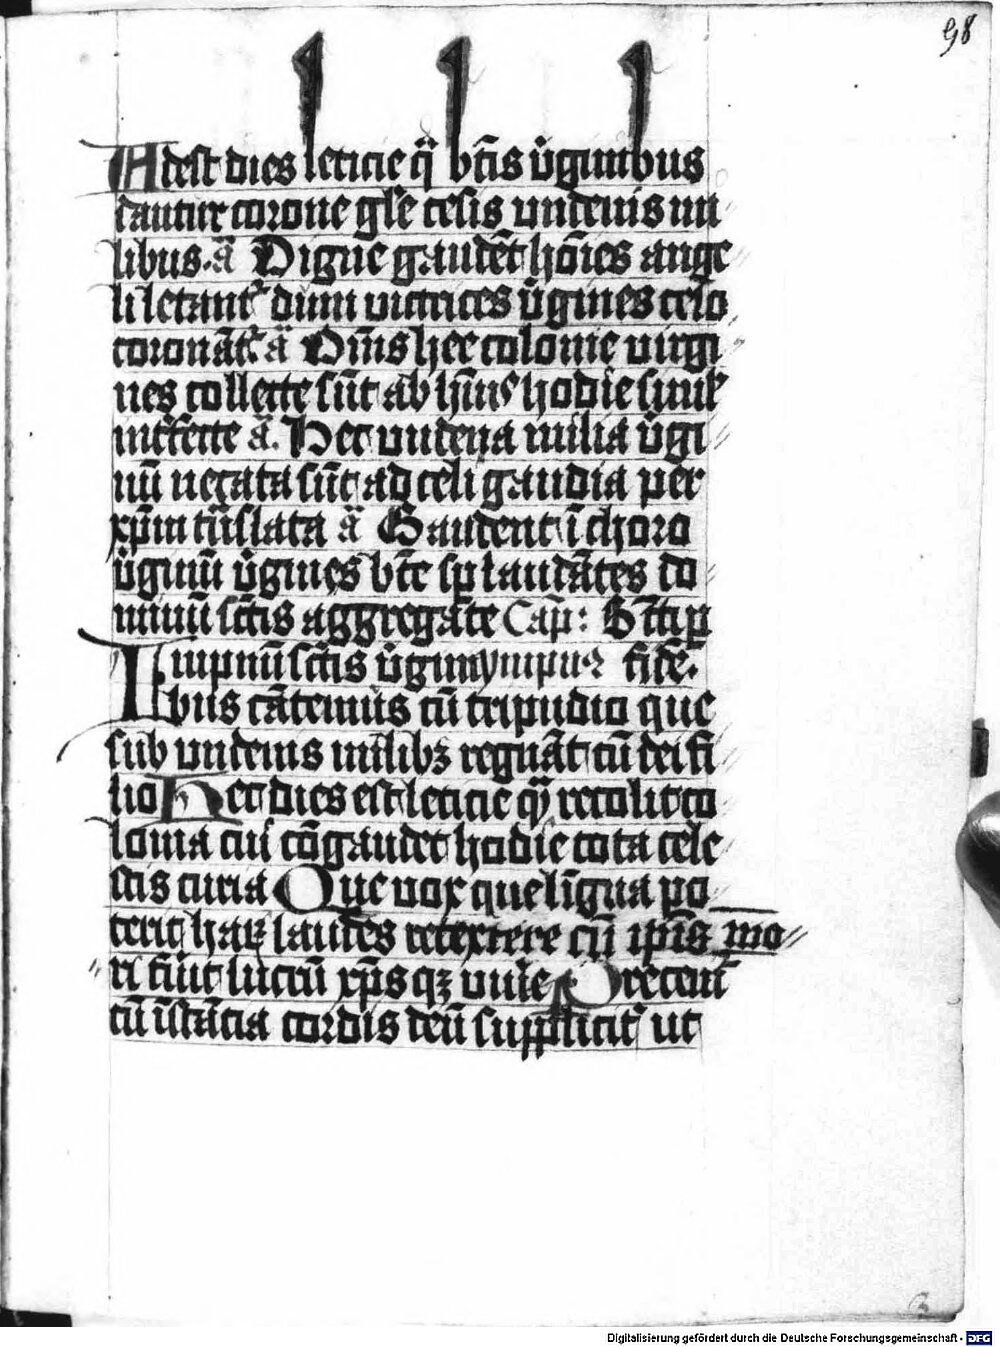 98
Adest dies leticie q̄ btīs v̄ginibus
dantur corone gl̄e celis vndenis mi
libus. a͞ Digne gaudēt hōies ange
li letant᷑ dum victrices v̄gines celo
coronāt᷑ a͞ Om̄s hee colonie virgi
nes collecte sūt ab hūnis hodie simul
int̄fecte a͞. Hec vndena milia v̄gi
nū necata sūt ad celi gaudia per
xp̄m trāslata a͞ Gaudent ī choro
v̄ginū v̄gines btē sp̄ laudātes do
minū sctīs aggregāte Cap̄:
Impnū sctīs v̄gini
bus cātemus cū tripudio que
sub vndenis milibꝫ regnāt cū dei fi
lio Hec dies est leticie qua recolit co
lonia cui cōgaudet hodie tota cele
stis curia Que vox que līgua po
terit haꝝ laudes retexere cū ip̄is mo
ri fuit lucrū xp̄s qꝫ viūe Precem᷑
cū īstātia cordis deū supplicit᷑ ut
Digitalisierung gefördert durch die Deutsche Forschungsgemeinschaft - DFG